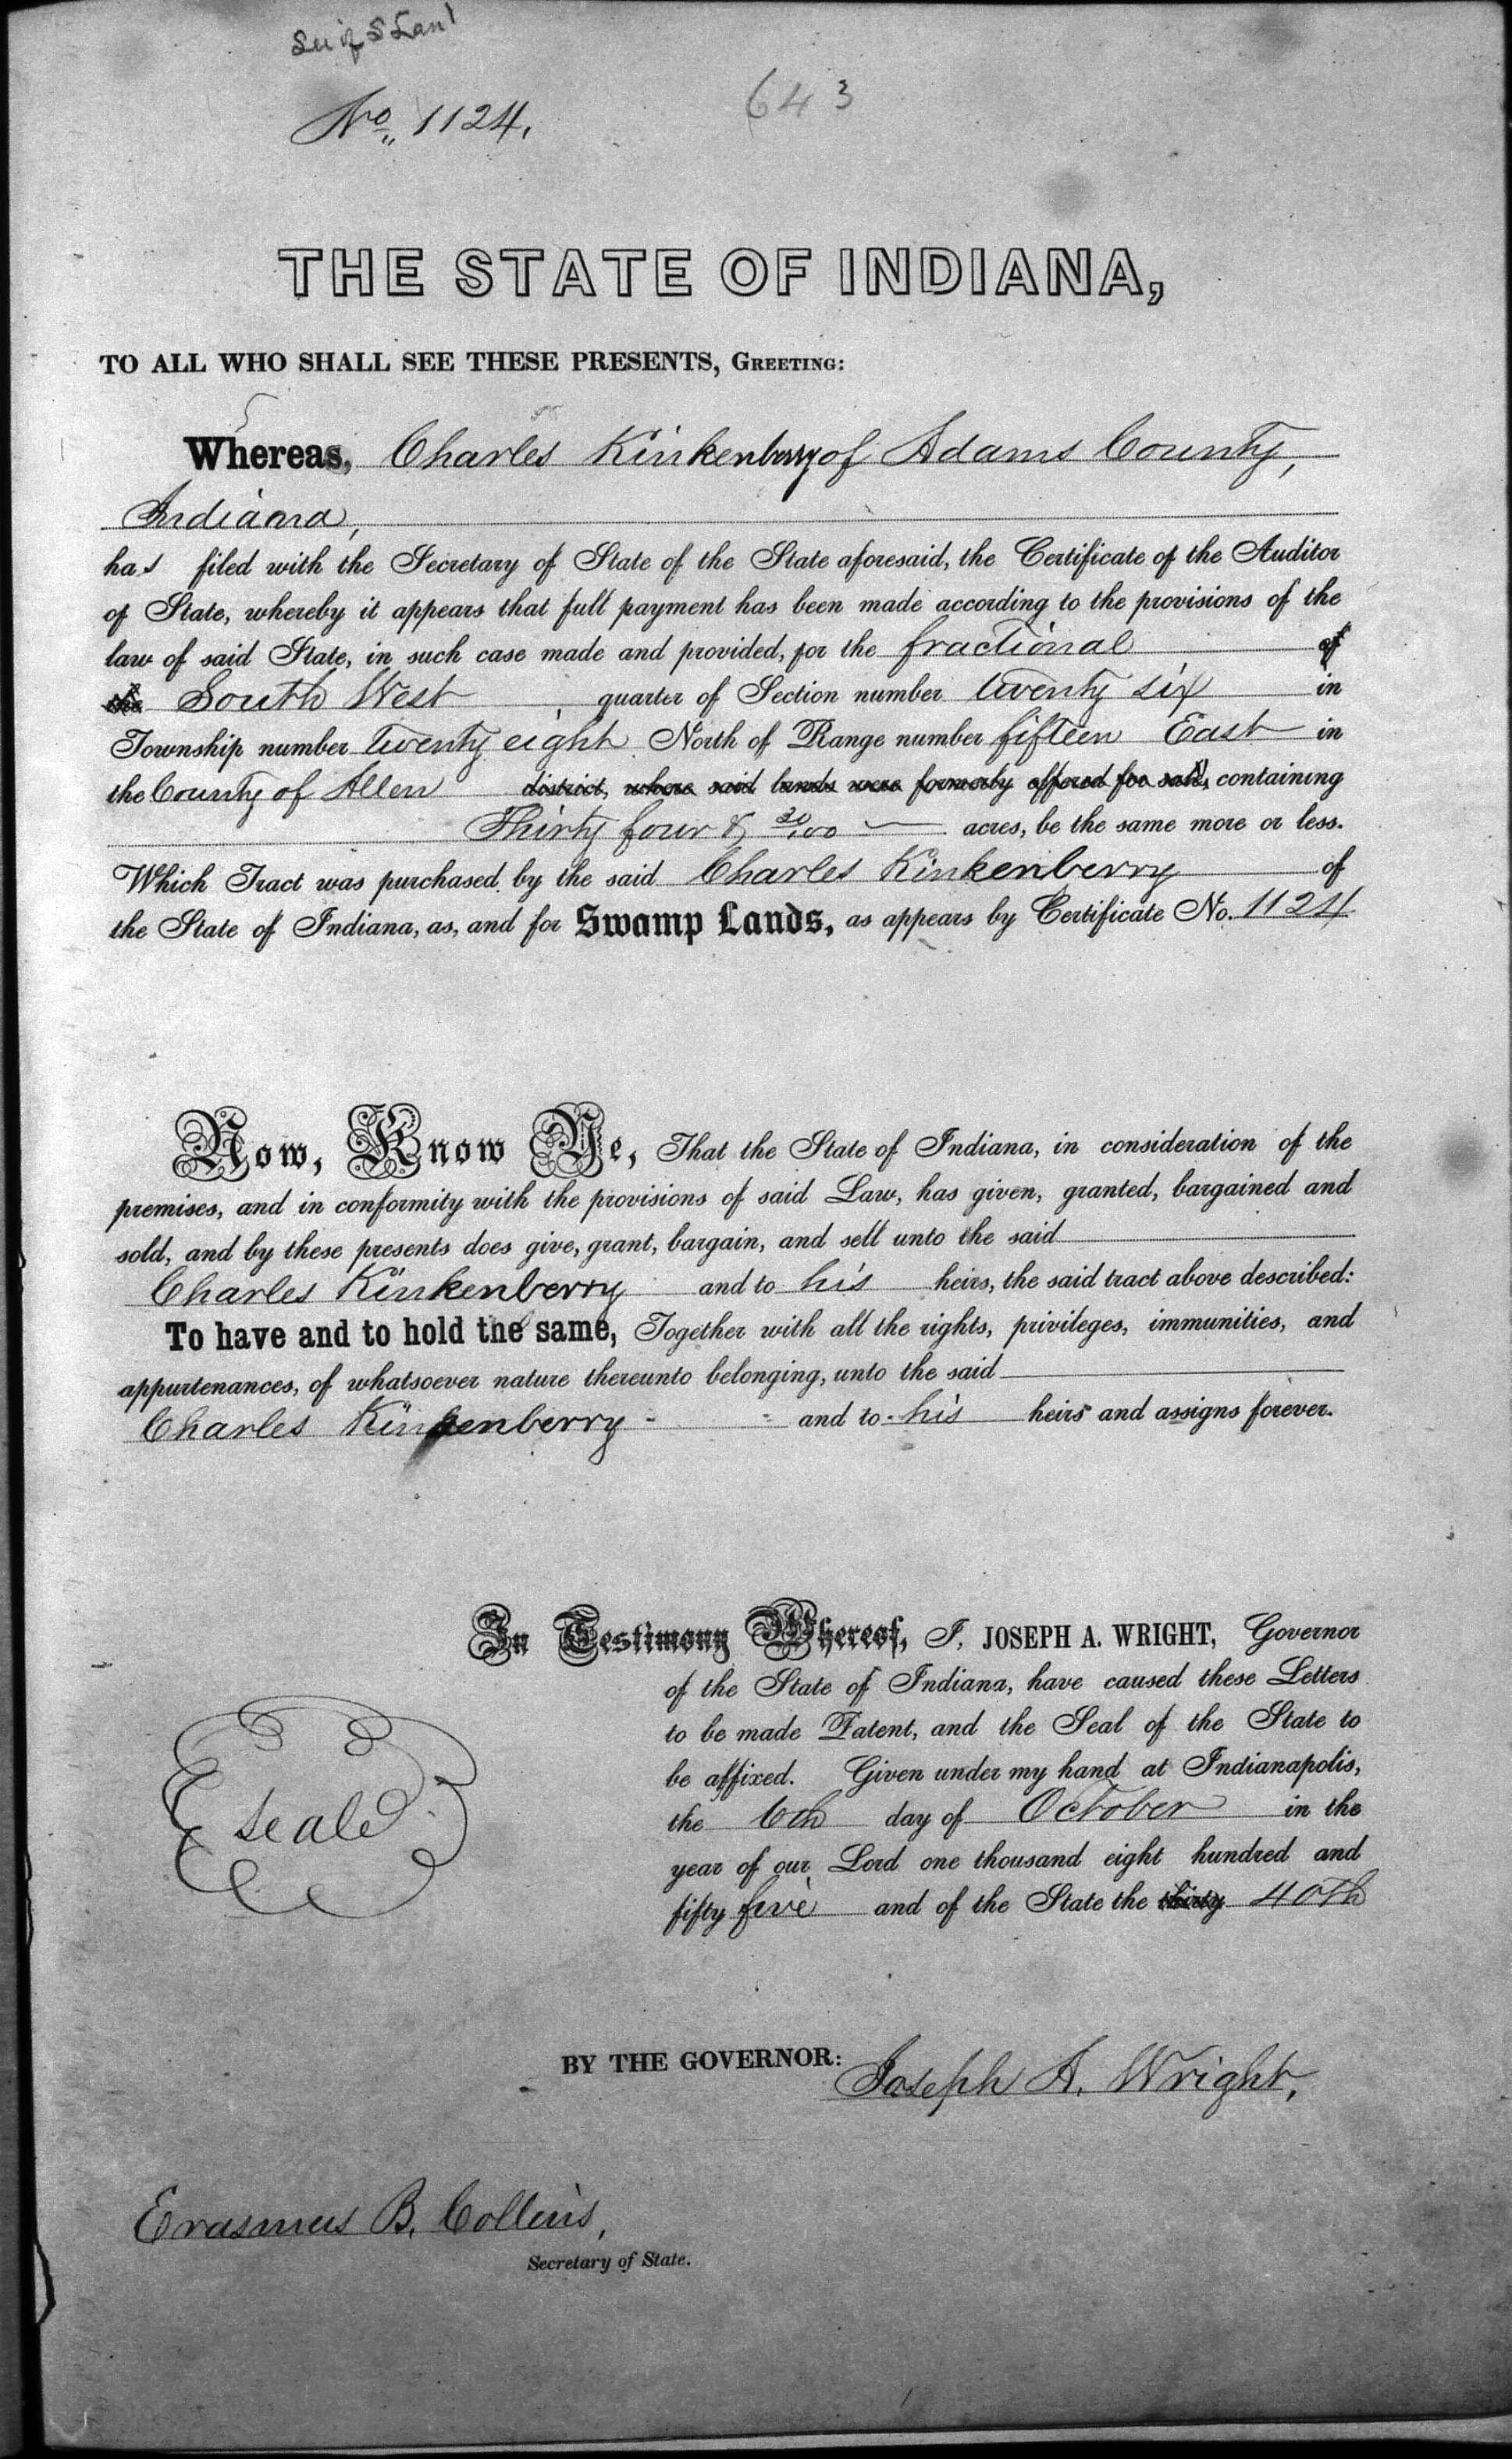 No. 1124.
643
THE STATE OF INDIANA,
TO ALL WHO SHALL SEE THESE PRESENTS, GREETING:
Whereas, Charles Kinkenberry of Adams County,
Indiana,
has filed with the Secretary of State of the State aforesaid, the Certificate of the Auditor
of State, whereby it appears that full payment has been made according to the provisions of the
law of said State, in such case made and provided, for the fractional of
the South West quarter of Section number twenty six in
Township number twenty eight North of Range number fifteen East in
the County of Allen district, where said lands were formerly offered for sale, containing
Thirty four & 20/100 acres, be the same more or less.
Which Tract was purchased by the said Charles Kinkenberry of
the State of Indiana, as, and for Swamp Lands, as appears by Certificate No. 1124
Now, Know Ye, That the State of Indiana, in consideration of the
premises, and in conformity with the provisions of said Law, has given, granted, bargained and
sold, and by these presents does give, grant, bargain, and sell unto the said
Charles Kinkenberry and to his heirs, the said tract above described:
To have and to hold the same, Together with all the rights, privileges, immunities, and
appurtenances, of whatsoever nature thereunto belonging, unto the said
Charles Kinkenberry and to his heirs and assigns forever.
In Testimony Whereof, I, JOSEPH A. WRIGHT, Governor
of the State of Indiana, have caused these Letters
to be made Patent, and the Seal of the State to
be affixed. Given under my hand at Indianapolis,
the 6th day of October in the
year of our Lord one thousand eight hundred and
fifty five and of the State the thirty 40th
Seal
BY THE GOVERNOR: Joseph A. Wright,
Erasmus B. Collins,
Secretary of State.